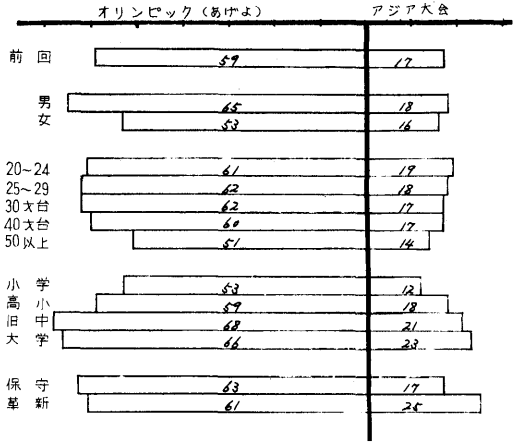 オリンピック（あげよ） アジア大会
前回 59 17
男 65 18
女 53 16
20~24 61 19
25~29 62 18
30才台 62 17
40才台 60 17
50以上 51 14
小学 53 12
高小 59 18
旧中 68 21
大学 66 23
保守 63 17
革新 61 25